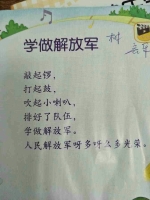 学做解放军
树
敲起锣，
打起鼓，
吹起小喇叭，
排好了队伍，
学做解放军。
人民解放军呀多呀么多光荣。